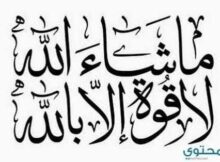 ما شَاءَ اللّٰهُ
لَا قُوَّةَ إِلَّا بِاللّٰهِ
محتوى